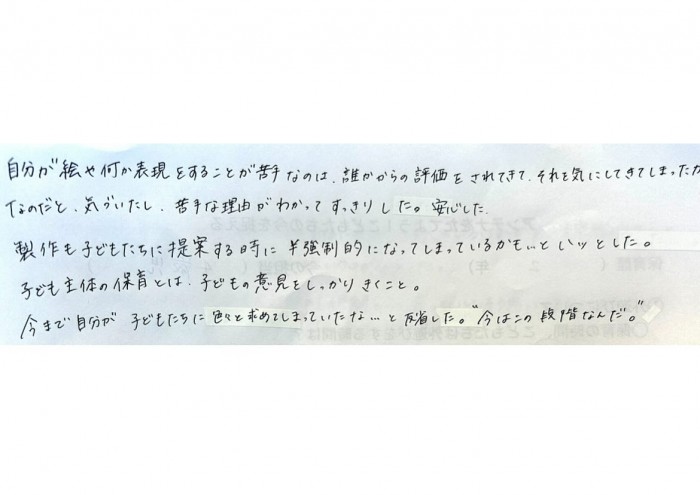 自分が絵や何か表現をすることが苦手なのは、誰かからの評価をされてきて、それを気にしてきてしまったか
なのだと、気づいたし、苦手な理由がわかってすっきりした。安心した
製作も子どもたちに提案する時に半強制的になってしまっているかも、とハッとした。
子ども主体の保育とは、子どもの意見をしっかりきくこと。
今まで自分が子どもたちに色々と求めてしまっていたな…と反省した。"今はこの段階なんだ。"